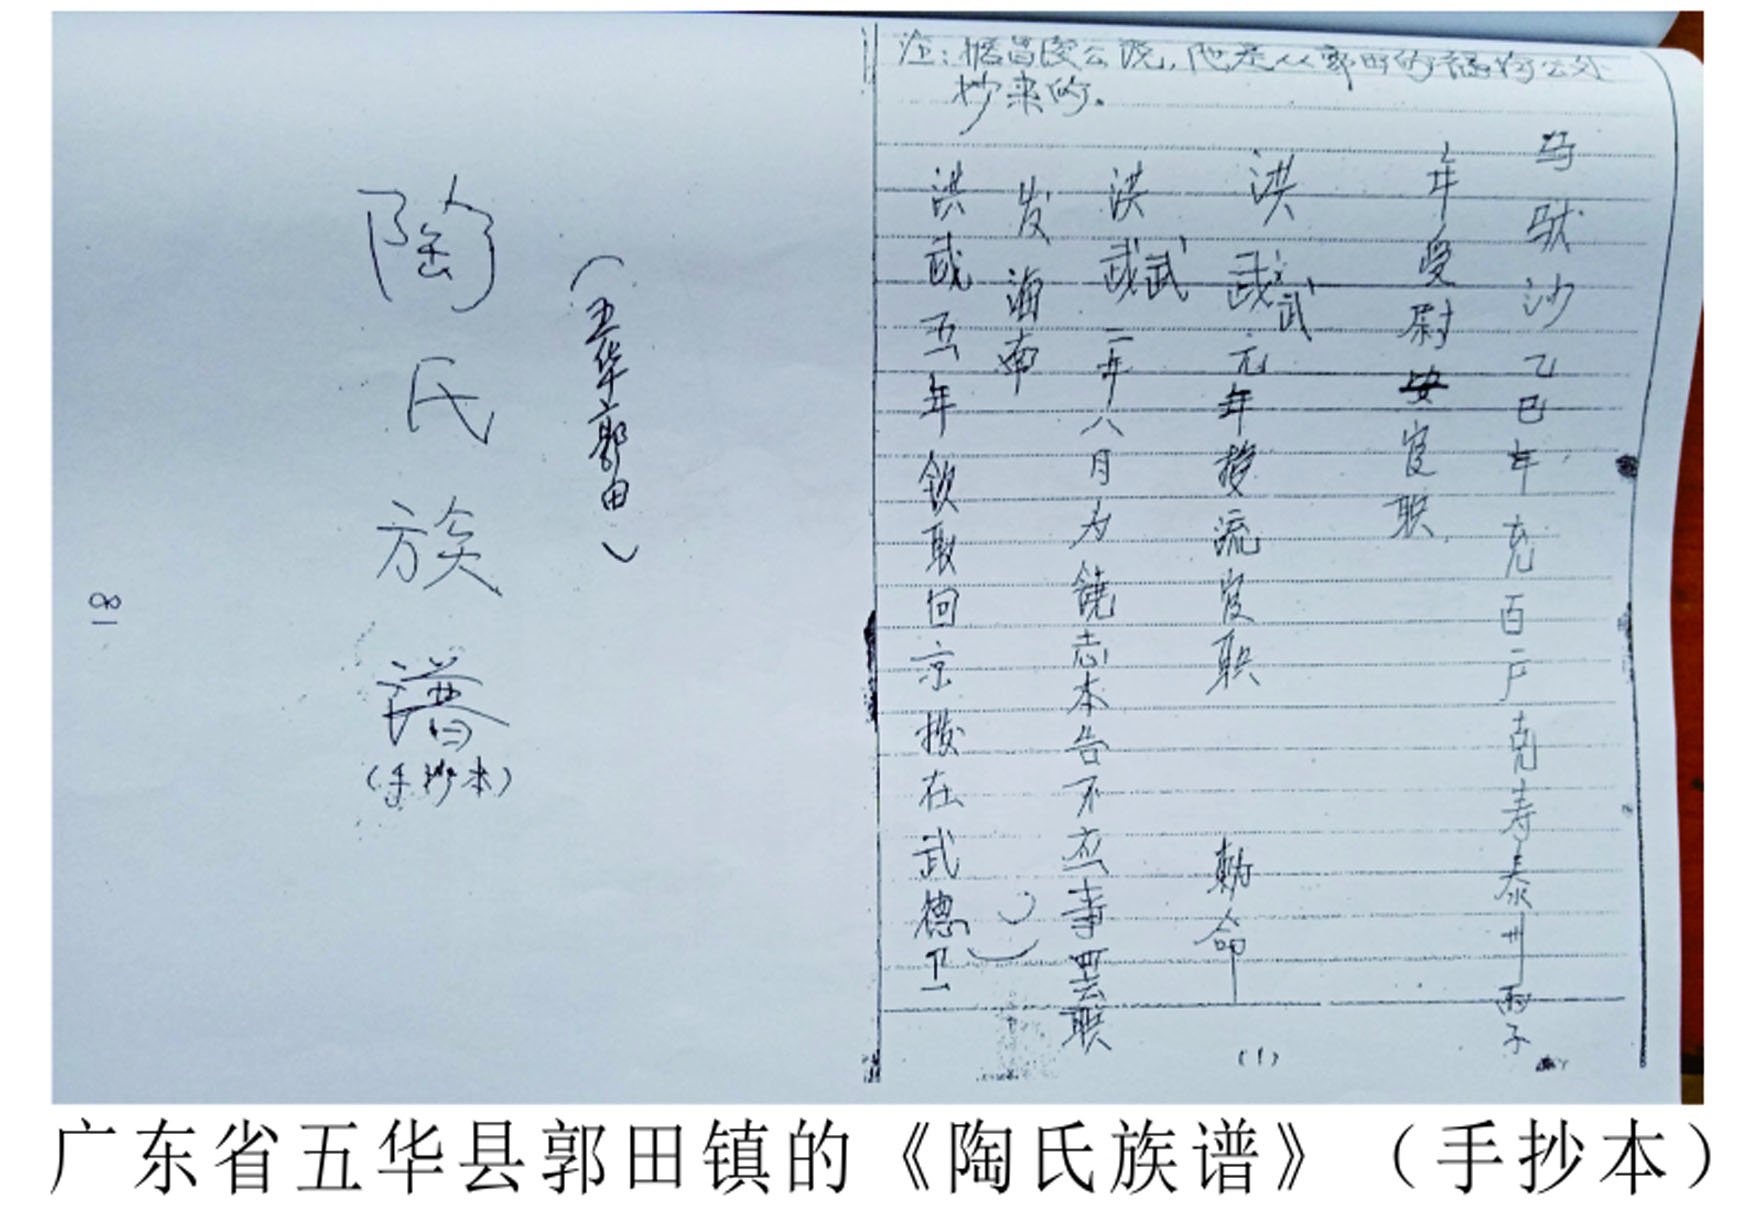 陶氏族谱
(手抄本)
(五华郭田)
81
注:据昌浚公说,他是从郭田的 公处
抄来的。
马驮沙乙巳年充百户克寿泰州两子
年受尉官职
洪武武元年授流官职 勅命
洪武武二年八月为饶志本告不应事罢职
发海南
洪武五年钦取回京授在武德卫
(1)
广东省五华县郭田镇的《陶氏族谱》(手抄本)